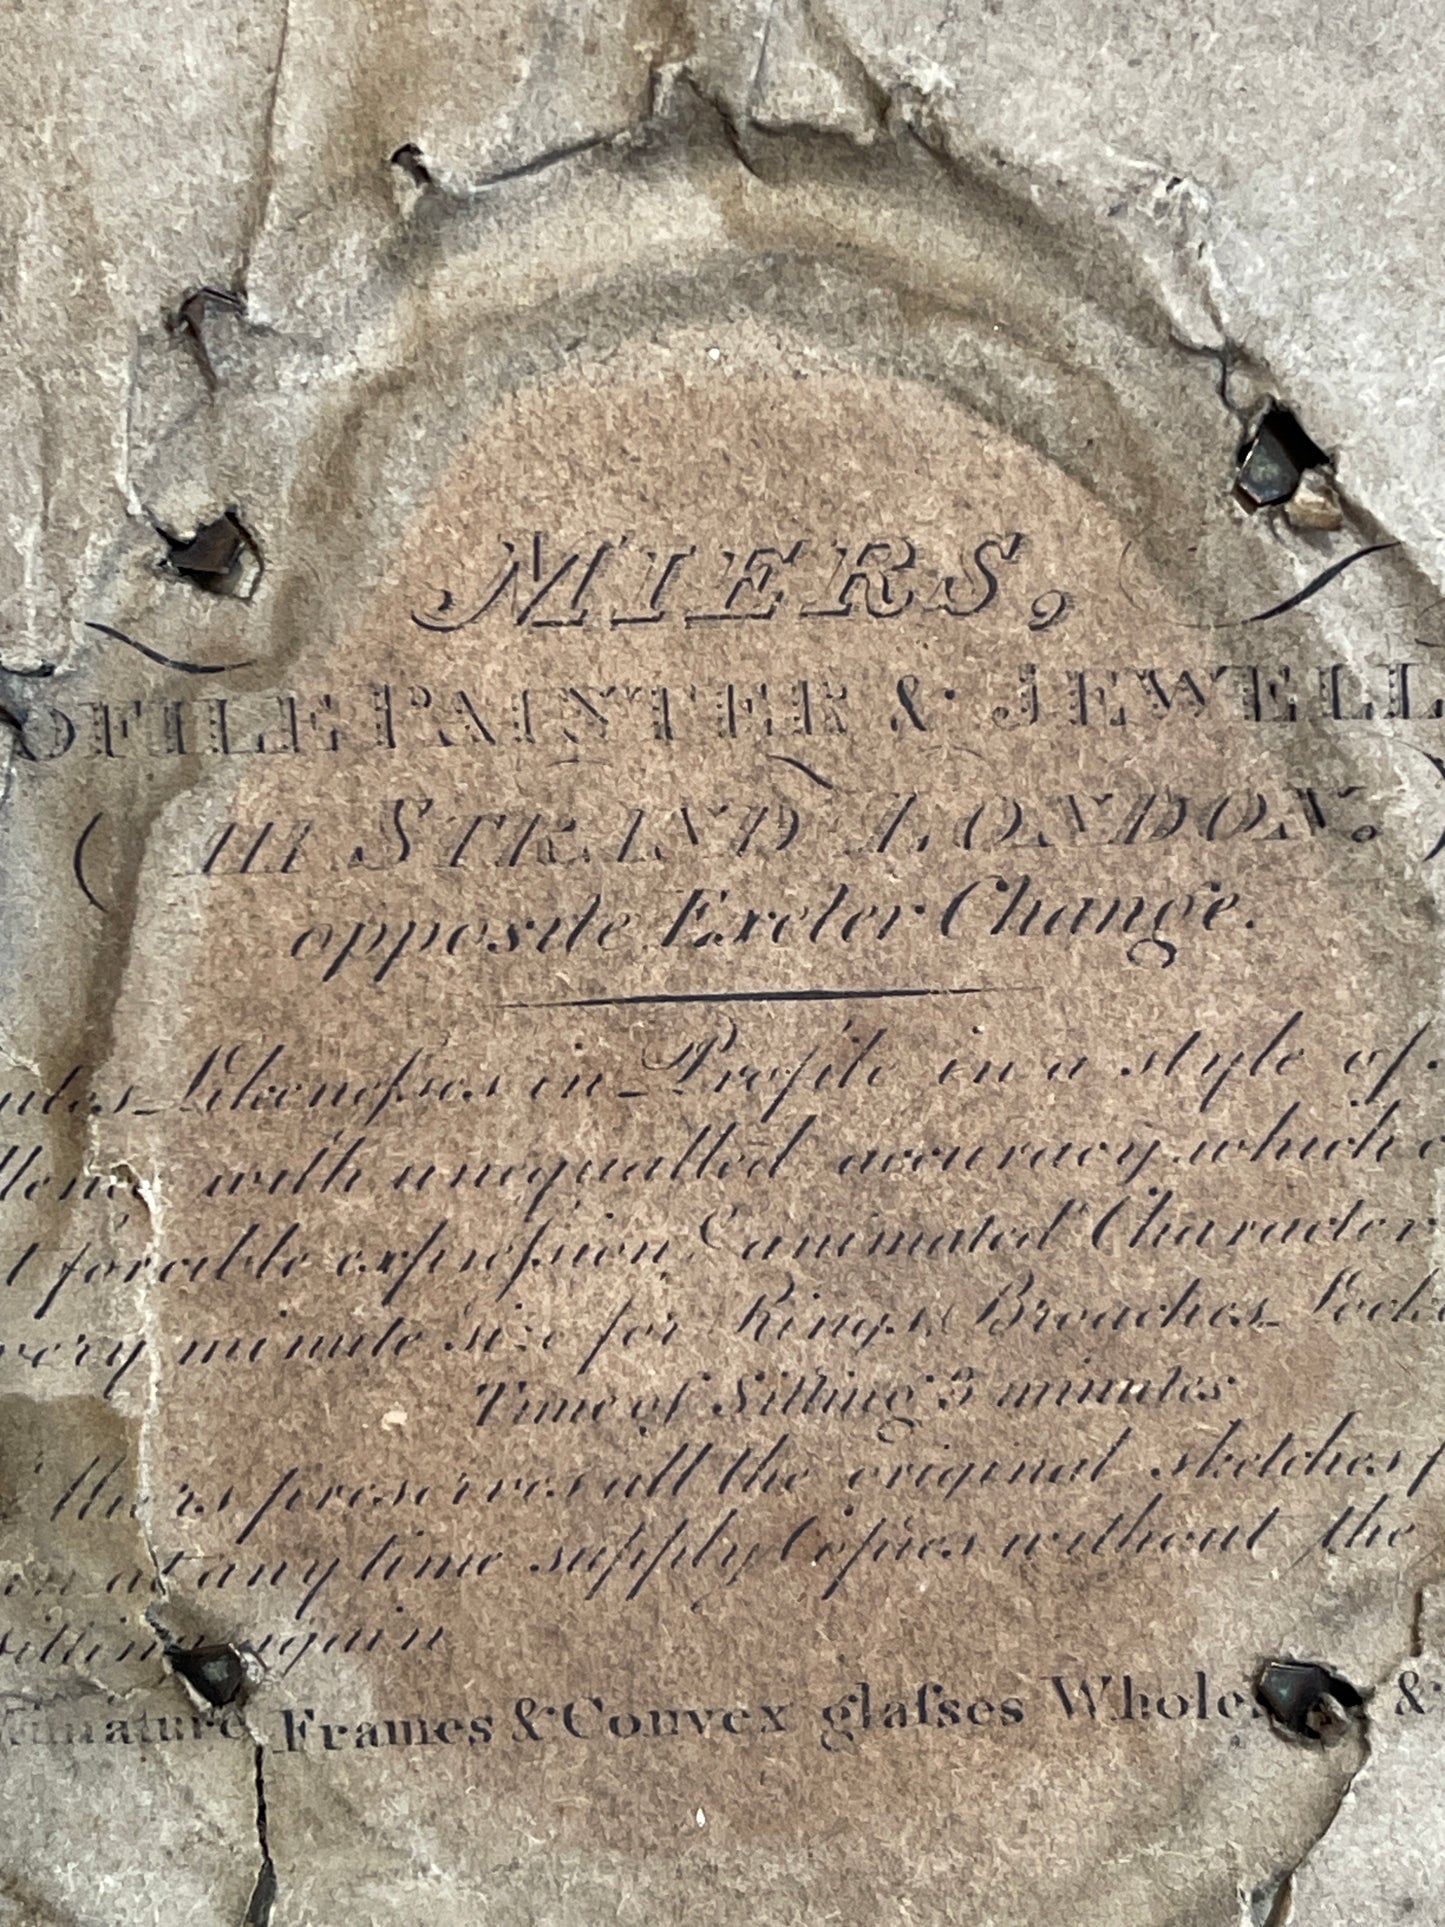 MIERS,
OFILE PAINTER & JEWELL
111 STRAND LONDON.
opposite Exeter Change.
utes Likeneſses in Profile in a style of
llence with unequalled accuracy which
t forcible expreſsion & animated Character
very minute size for Rings, Broaches Locke
Time of Sitting 3 minutes
Miers preserves all the original sketches f
en at any time supply Copies without the
sitting again
Miniature Frames & Convex glaſses Wholesale &